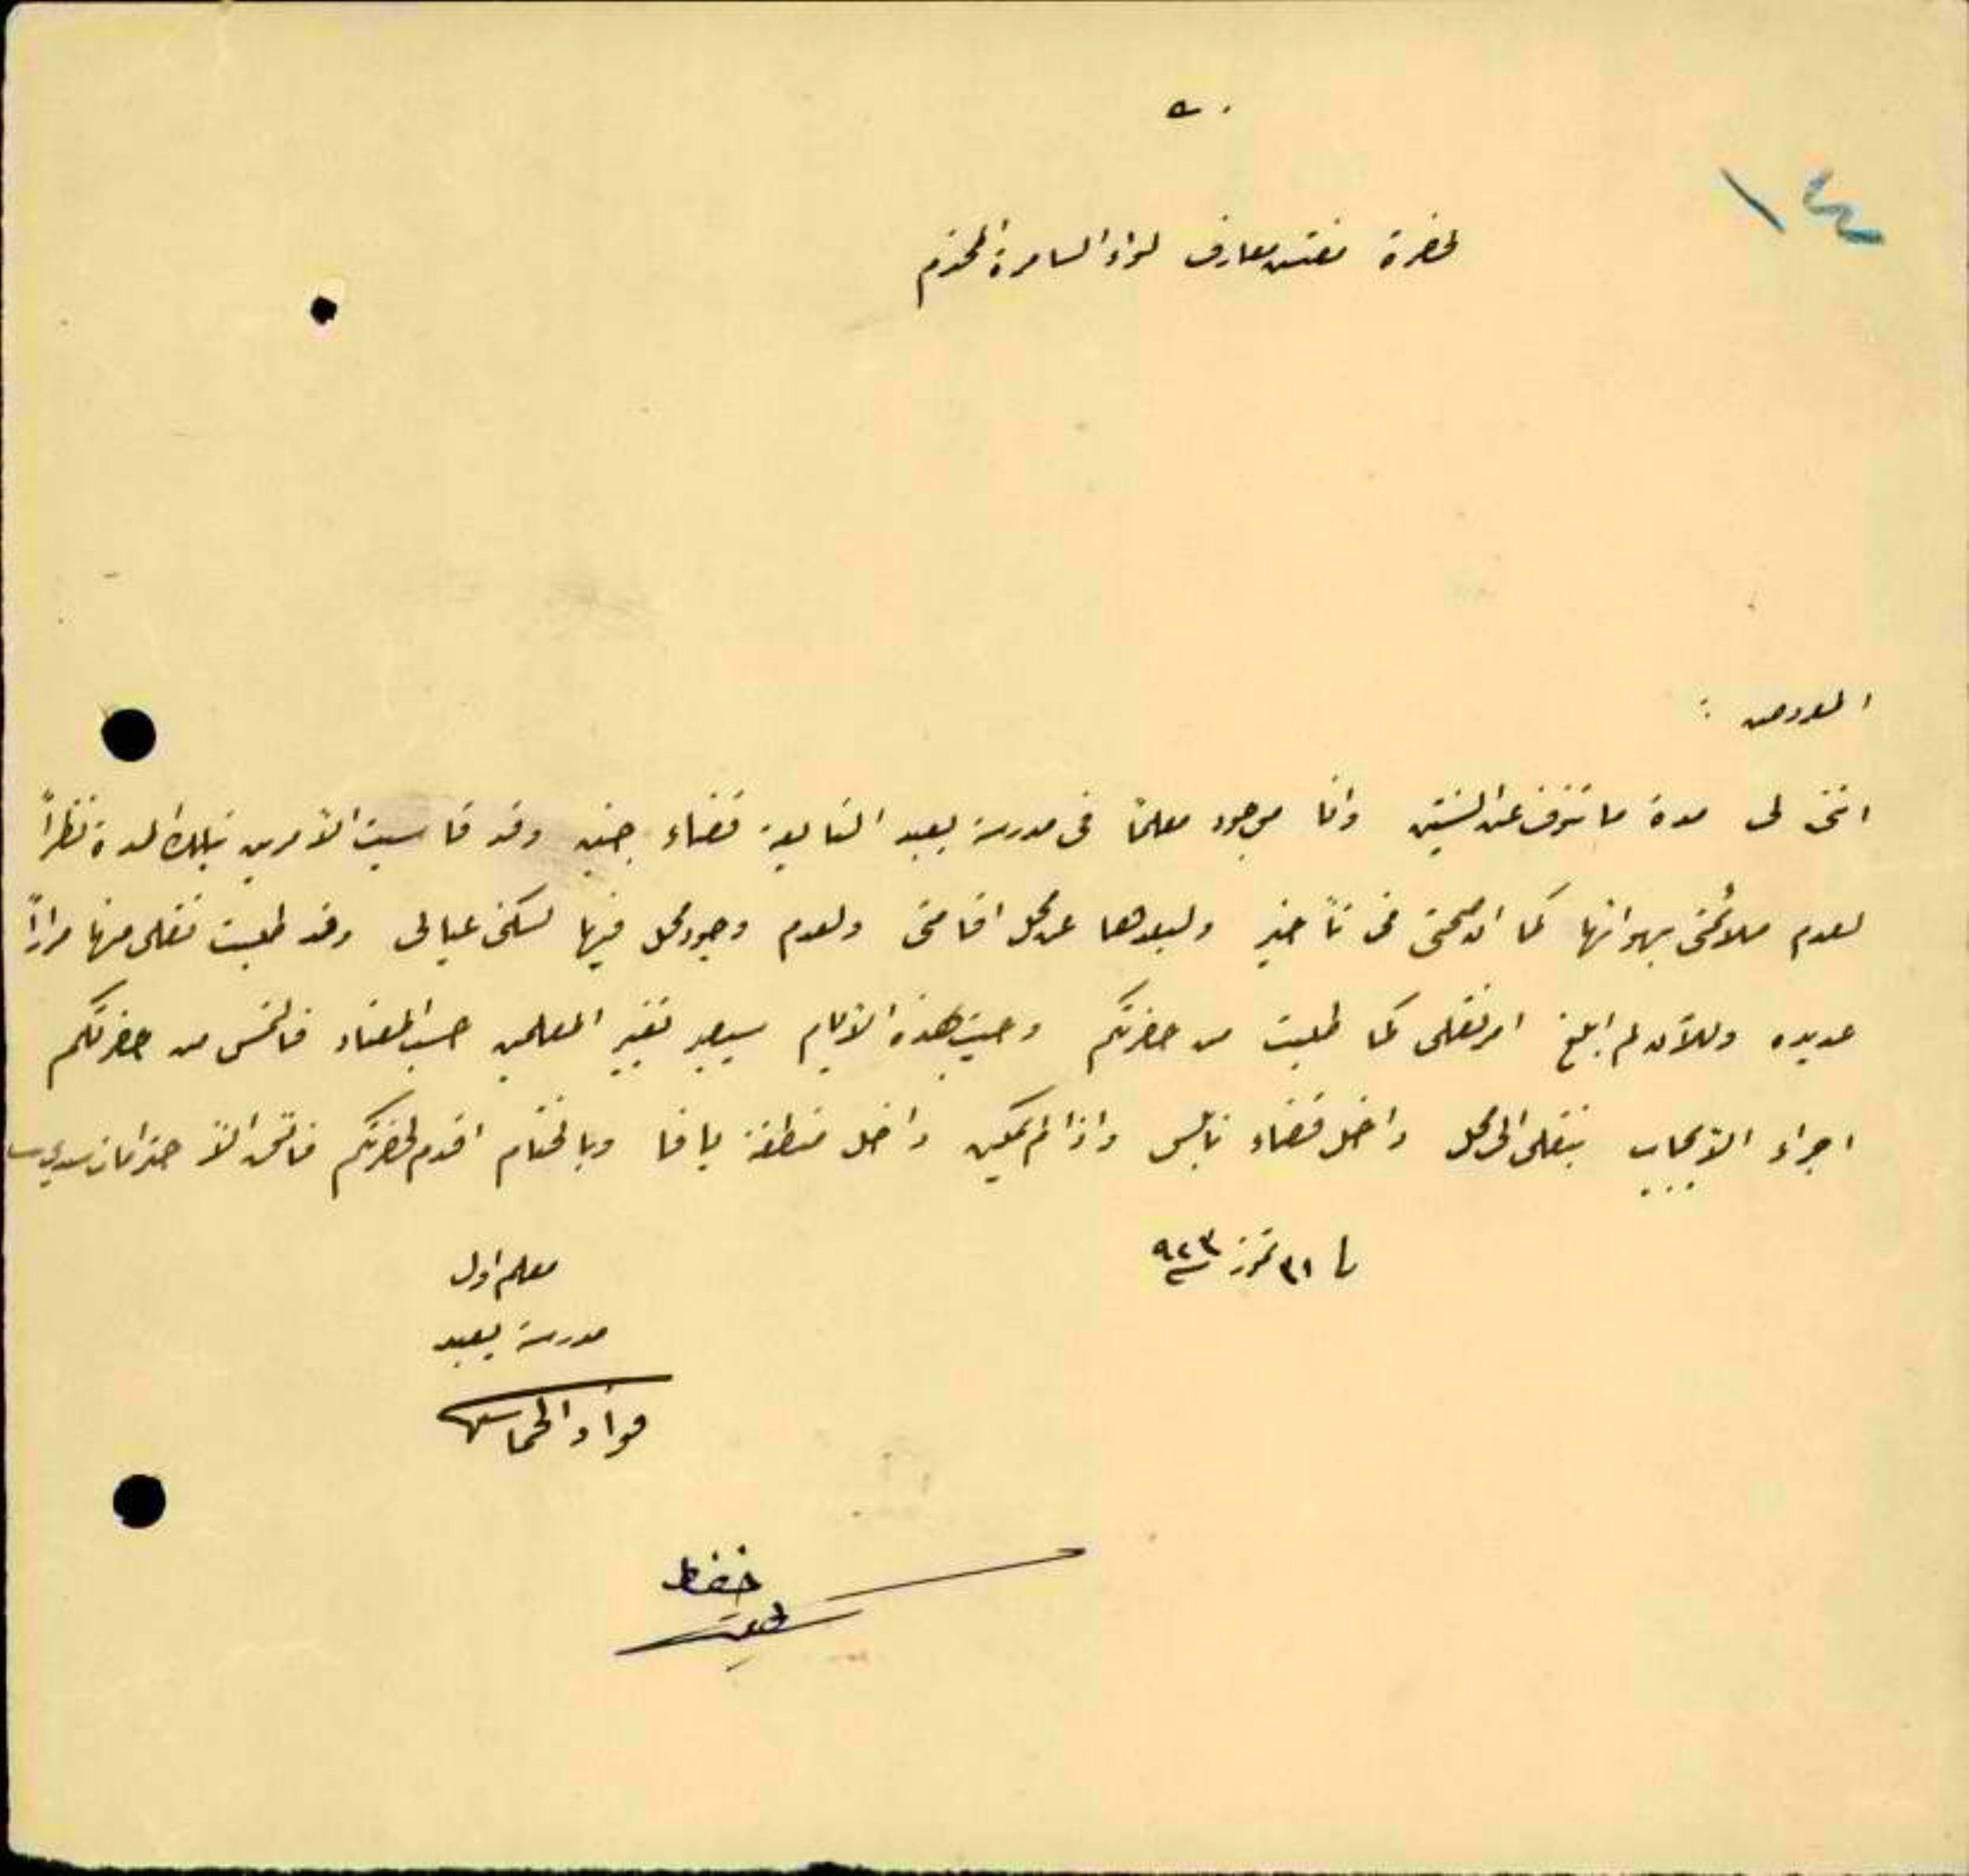 ١٤
لحضرة مفتش معارف لواء السامرة المحترم
المعروض :
انني لي مدة ما تنوف عن السنتين وانا موجود معلماً في مدرسة يعبد التابعة قضاء جنين وقد قاسيت الأمرين بتلك المدة نظراً
لعدم ملائمتي بهوائها كما ان صحتي في تأخير ولبعدها عن محل اقامتي ولعدم وجود محل فيها لسكن عيالي وقد طلبت نقلي منها مراراً
عديده وللآن لم ابلغ امر نقلي كما طلبت من حضرتكم وحيث بهذه الأيام سيصير تغيير المعلمين حسب المعتاد فالتمس من حضرتكم
اجراء الأيجاب بنقلي الى محل داخل قضاء نابلس واذا لم يمكن داخل منطقة يافا وبالختام اقدم لحضرتكم فائق الأحترامات سيدي
٣١ تموز ٩٢٣
معلم اول
مدرسة يعبد
فؤاد
حفظ